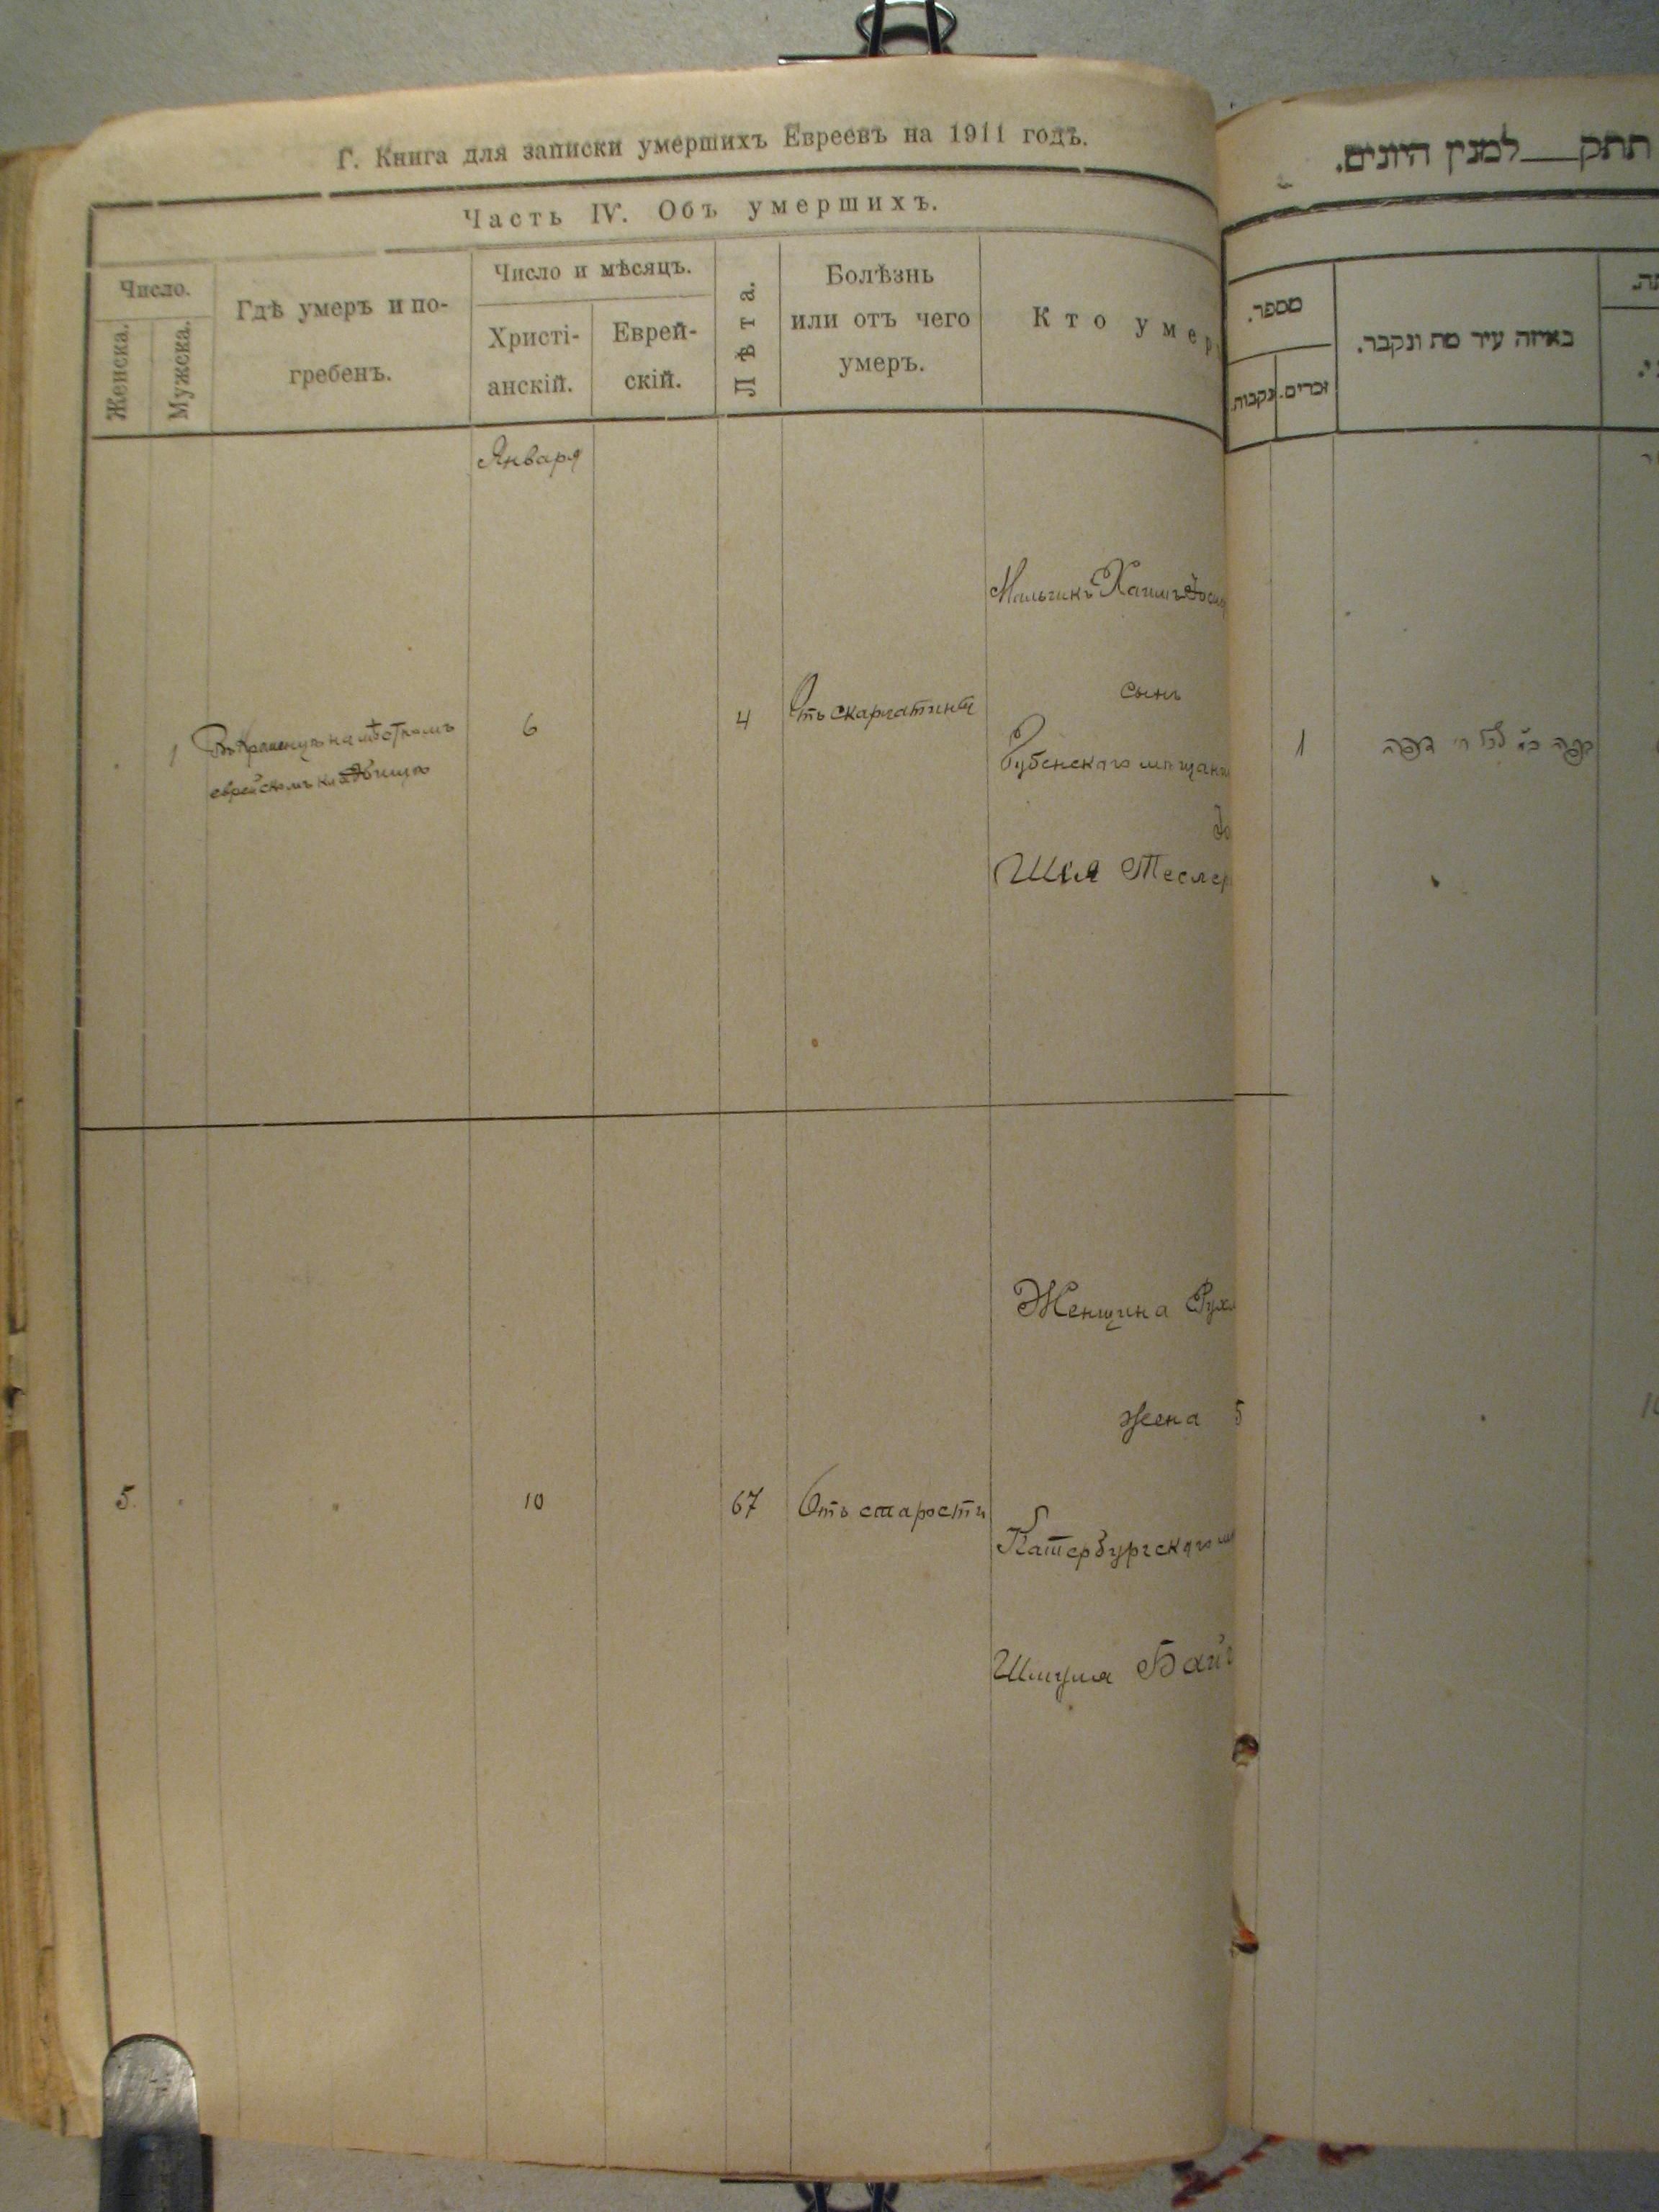 Г. Книга для записки умершихъ Евреевъ на 1911 годъ.
Часть IV. Объ умершихъ.
Число.
Женска.
Мужска.
Гдѣ умеръ и по-
гребенъ.
Число и мѣсяцъ.
Христі-
анскій.
Еврей-
скій.
Лѣта.
Болѣзнь
или отъ чего
умеръ.
Кто умер
Января
1
Въ Кременцѣ на мѣстномъ
еврейскомъ кладбищѣ
6
4
Отъ скарлатины
Мальчикъ Хаимъ
сынъ
мѣщани
Шія Теслер
5
10
67
Отъ старости
Женщина Рухл
жена
Катербургскаго
Шмуля Бай
תתק__למנין היונים.
מספר.
נקבות.
זכרים.
באיזה עיר מת ונקבר.
1